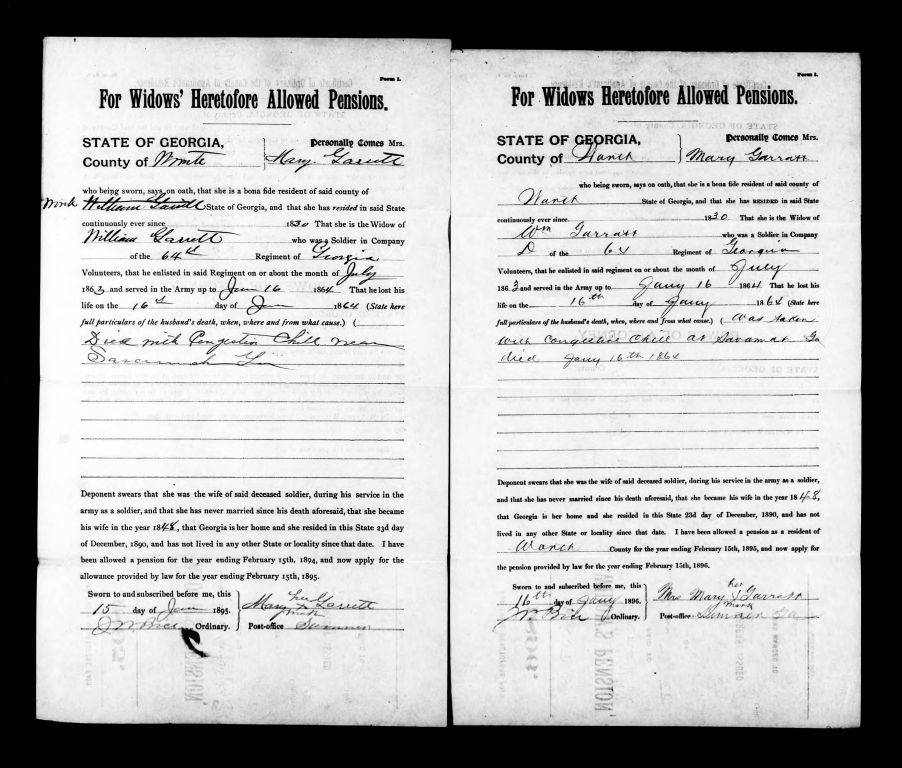 Form 1.
For Widows' Heretofore Allowed Pensions.
STATE OF GEORGIA,
County of Worth
Personally Comes Mrs.
Mary. Garrett
who being sworn, says on oath, that she is a bona fide resident of said county of
Worth William State of Georgia, and that she has resided in said State
continuously ever since 1830 That she is the Widow of
William Garrett who was a Soldier in Company
of the 64th Regiment of Georgia
Volunteers, that he enlisted in said Regiment on or about the month of July
1863 and served in the Army up to Jan 16 1864 That he lost his
life on the 16th day of Jan 1864 (State here
full particulars of the husband's death, when, where and from what cause.) (
Died with Congestion Chill near
Savannah Ga
Deponent swears that she was the wife of said deceased soldier, during his service in the
army as a soldier, and that she has never married since his death aforesaid, that she became
his wife in the year 1848, that Georgia is her home and she resided in this State 23d day
of December, 1890, and has not lived in any other State or locality since that date. I have
been allowed a pension for the year ending February 15th, 1894, and now apply for the
allowance provided by law for the year ending February 15th, 1895.
Sworn to and subscribed before me, this
15 day of Jan 1895.
Ordinary.
Mary her X mark Garrett
Post-office Sumner
Form 1.
For Widows Heretofore Allowed Pensions.
STATE OF GEORGIA,
County of Worth
Personally Comes Mrs.
Mary Garratt
who being sworn, says on oath, that she is a bona fide resident of said county of
Worth State of Georgia, and that she has RESIDED in said State
continuously ever since 1830. That she is the Widow of
Wm Garratt who was a Soldier in Company
D of the 64 Regiment of Georgia
Volunteers, that he enlisted in said regiment on or about the month of July
1863 and served in the Army up to Jany 16 1864 That he lost his
life on the 16th day of Jany 1864 (State here
full particulars of the husband's death, when, where and from what cause.) ( Was taken
with Congestive Chill at Savanah Ga
died Jany 16th 1864
Deponent swears that she was the wife of said deceased soldier, during his service in the army as a soldier,
and that she has never married since his death aforesaid, that she became his wife in the year 1848,
that Georgia is her home and she resided in this State 23d day of December, 1890, and has not
lived in any other State or locality since that date. I have been allowed a pension as a resident of
Worth County for the year ending February 15th, 1895, and now apply for
the pension provided by law for the year ending February 15th, 1896.
Sworn to and subscribed before me, this
16th day of Jany 1896.
Ordinary.
Mrs Mary her X mark Garratt
Post-office Sumner Ga